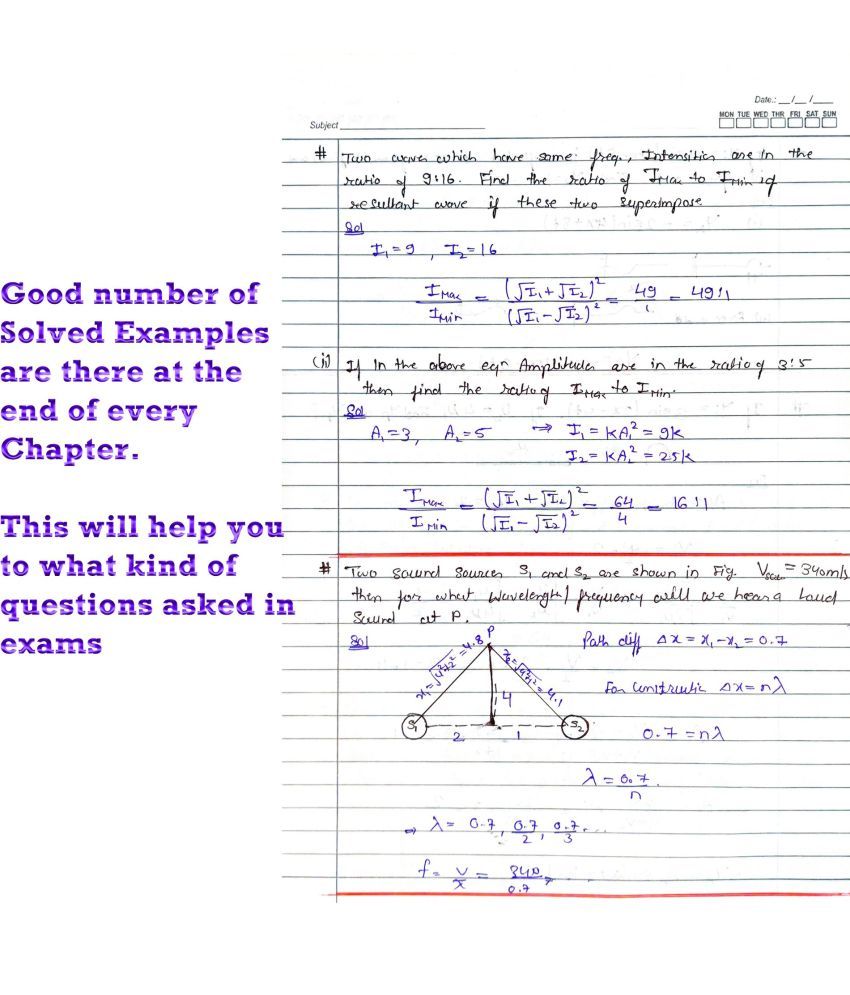 Good number of
Solved Examples
are there at the
end of every
Chapter.
This will help you
to what kind of
questions asked in
exams
Date.: __/__/____
MON TUE WED THR FRI SAT SUN
Subject
# Two waves which have same freq., Intensities are in the
ratio of 9:16. Find the ratio of IMax to IMin of
resultant wave if these two superimpose
Sol
I₁ = 9 , I₂ = 16
IMax/IMin = (√I₁ + √I₂)²/(√I₁ - √I₂)² = 49/1 = 49:1
(ii) If in the above eqn Amplitudes are in the ratio of 3:5
then find the ratio of IMax to IMin.
Sol
A₁ = 3, A₂ = 5 ⇒ I₁ = KA₁² = 9K
I₂ = KA₂² = 25K
IMax/IMin = (√I₁ + √I₂)²/(√I₁ - √I₂)² = 64/4 = 16:1
# Two sound sources S₁ and S₂ are shown in Fig. = 340m/s
then for what wavelength/frequency will we hear a Loud
Sound at P.
Sol
P
x₁ = √4²+2² = 4.8
x₂ = √4²+1² = 4.1
4
S₁
2
1
S₂
Path diff Δx = x₁ - x₂ = 0.7
For Constructive Δx = nλ
0.7 = nλ
λ = 0.7/n .
⇒ λ = 0.7, 0.7/2, 0.7/3 ...
f = v/λ = 340/0.7,